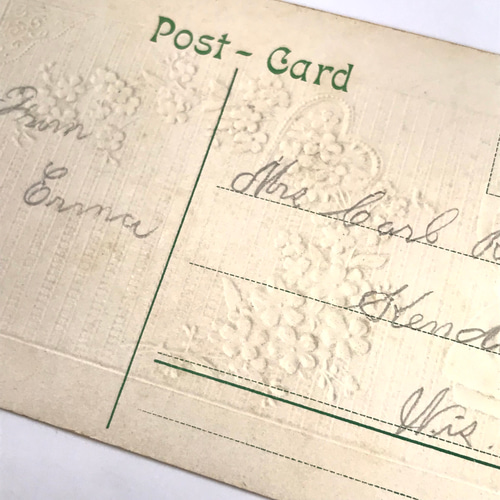 Post-Card
From
Erma
Mrs Carl
Wis.